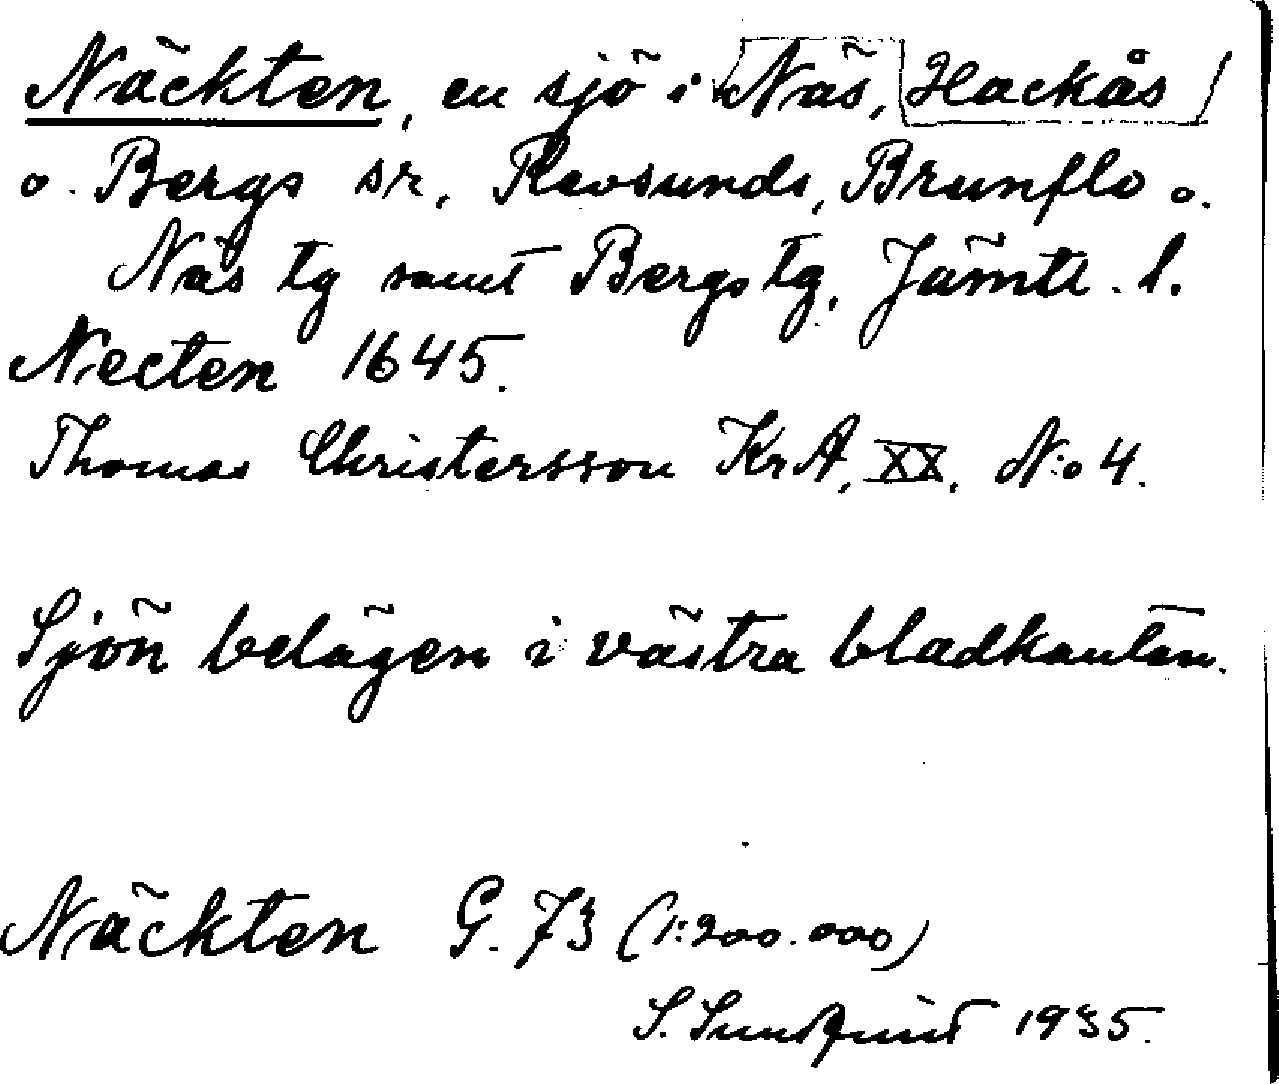 Näckten, en sjö i Näs, Hackås
o. Bergs sr, Revsunds, Brunflo o.
Näs tg samt Bergs tg, Jämtl. l.
Necten 1645.
Thomas Christersson KrA, XX, N:o 4.
Sjön belägen i västra bladkanten.
Näckten G. 73 (1:200.000)
S. 1935.